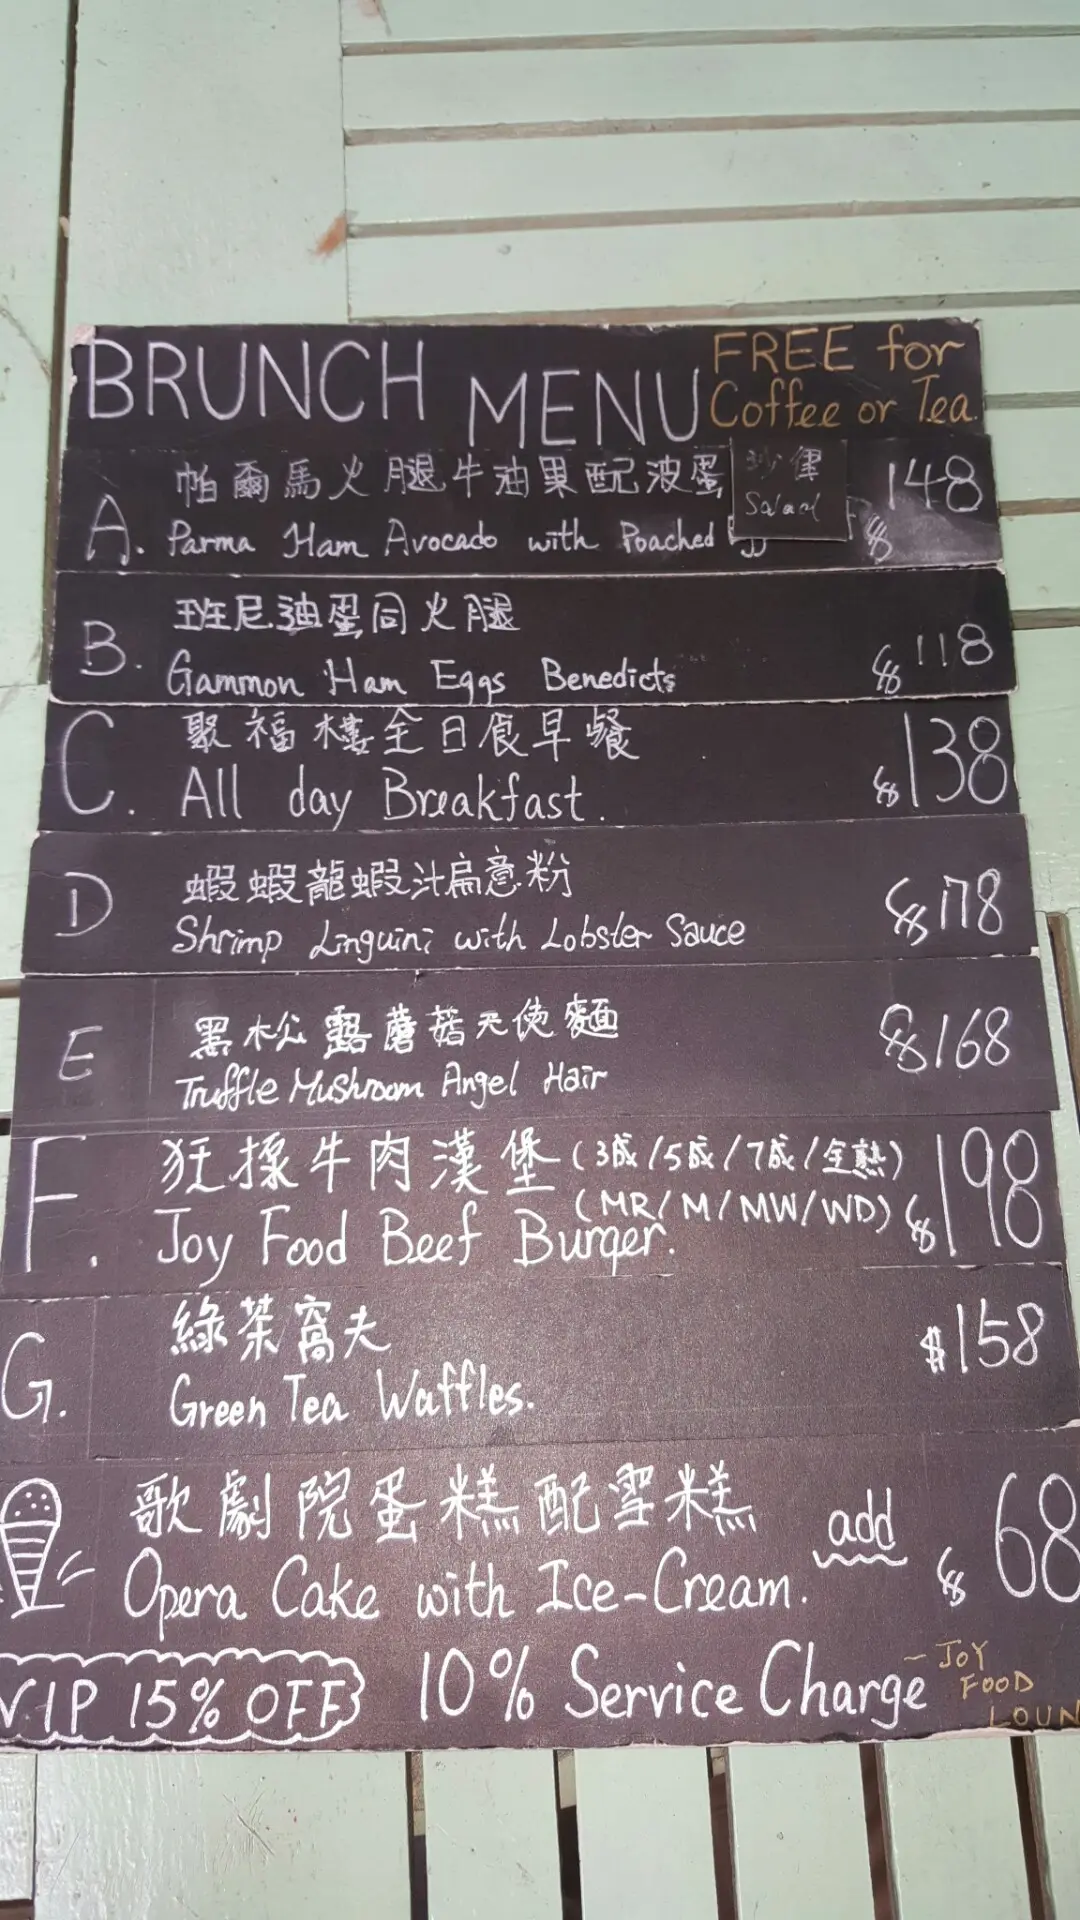 BRUNCH MENU
FREE for
Coffee or Tea.
A.
帕爾馬火腿牛油果配波蛋
沙律
Salad
$148
Parma Ham Avocado with Poached
B.
班尼迪蛋同火腿
Gammon Ham Eggs Benedicts
$118
C.
聚福樓全日食早餐
All day Breakfast.
$138
D
蝦蝦龍蝦汁扁意粉
Shrimp Linguini with Lobster Sauce
$178
E
黑松露蘑菇天使麵
Truffle Mushroom Angel Hair
$168
F.
牛肉漢堡(3成/5成/7成/全熟)
(MR/M/MW/WD)
Joy Food Beef Burger.
$198
G.
綠茶窩夫
Green Tea Waffles.
$158
歌劇院蛋糕配雪糕
Opera Cake with Ice-Cream.
add
$68
VIP 15% OFF
10% Service Charge
JOY
FOOD
LOUN